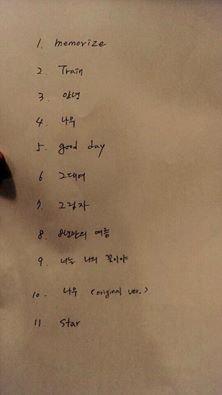 1. memorize
2. Train
3. 안녕
4. 나무
5. good day
6 그대여
7. 그림자
8. 8년만의 여름
9. 너는 나의 꽃이야
10. 나무 (original ver.)
11 Star